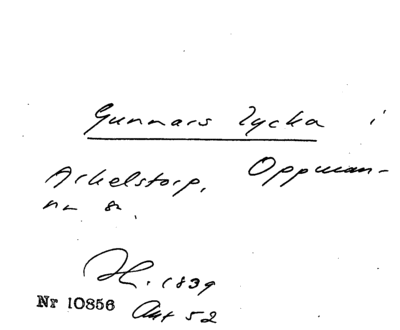 Gunnars lycka i
Arkelstorp, Oppman-
na sn.
1839
Nr 10856 Akt 52